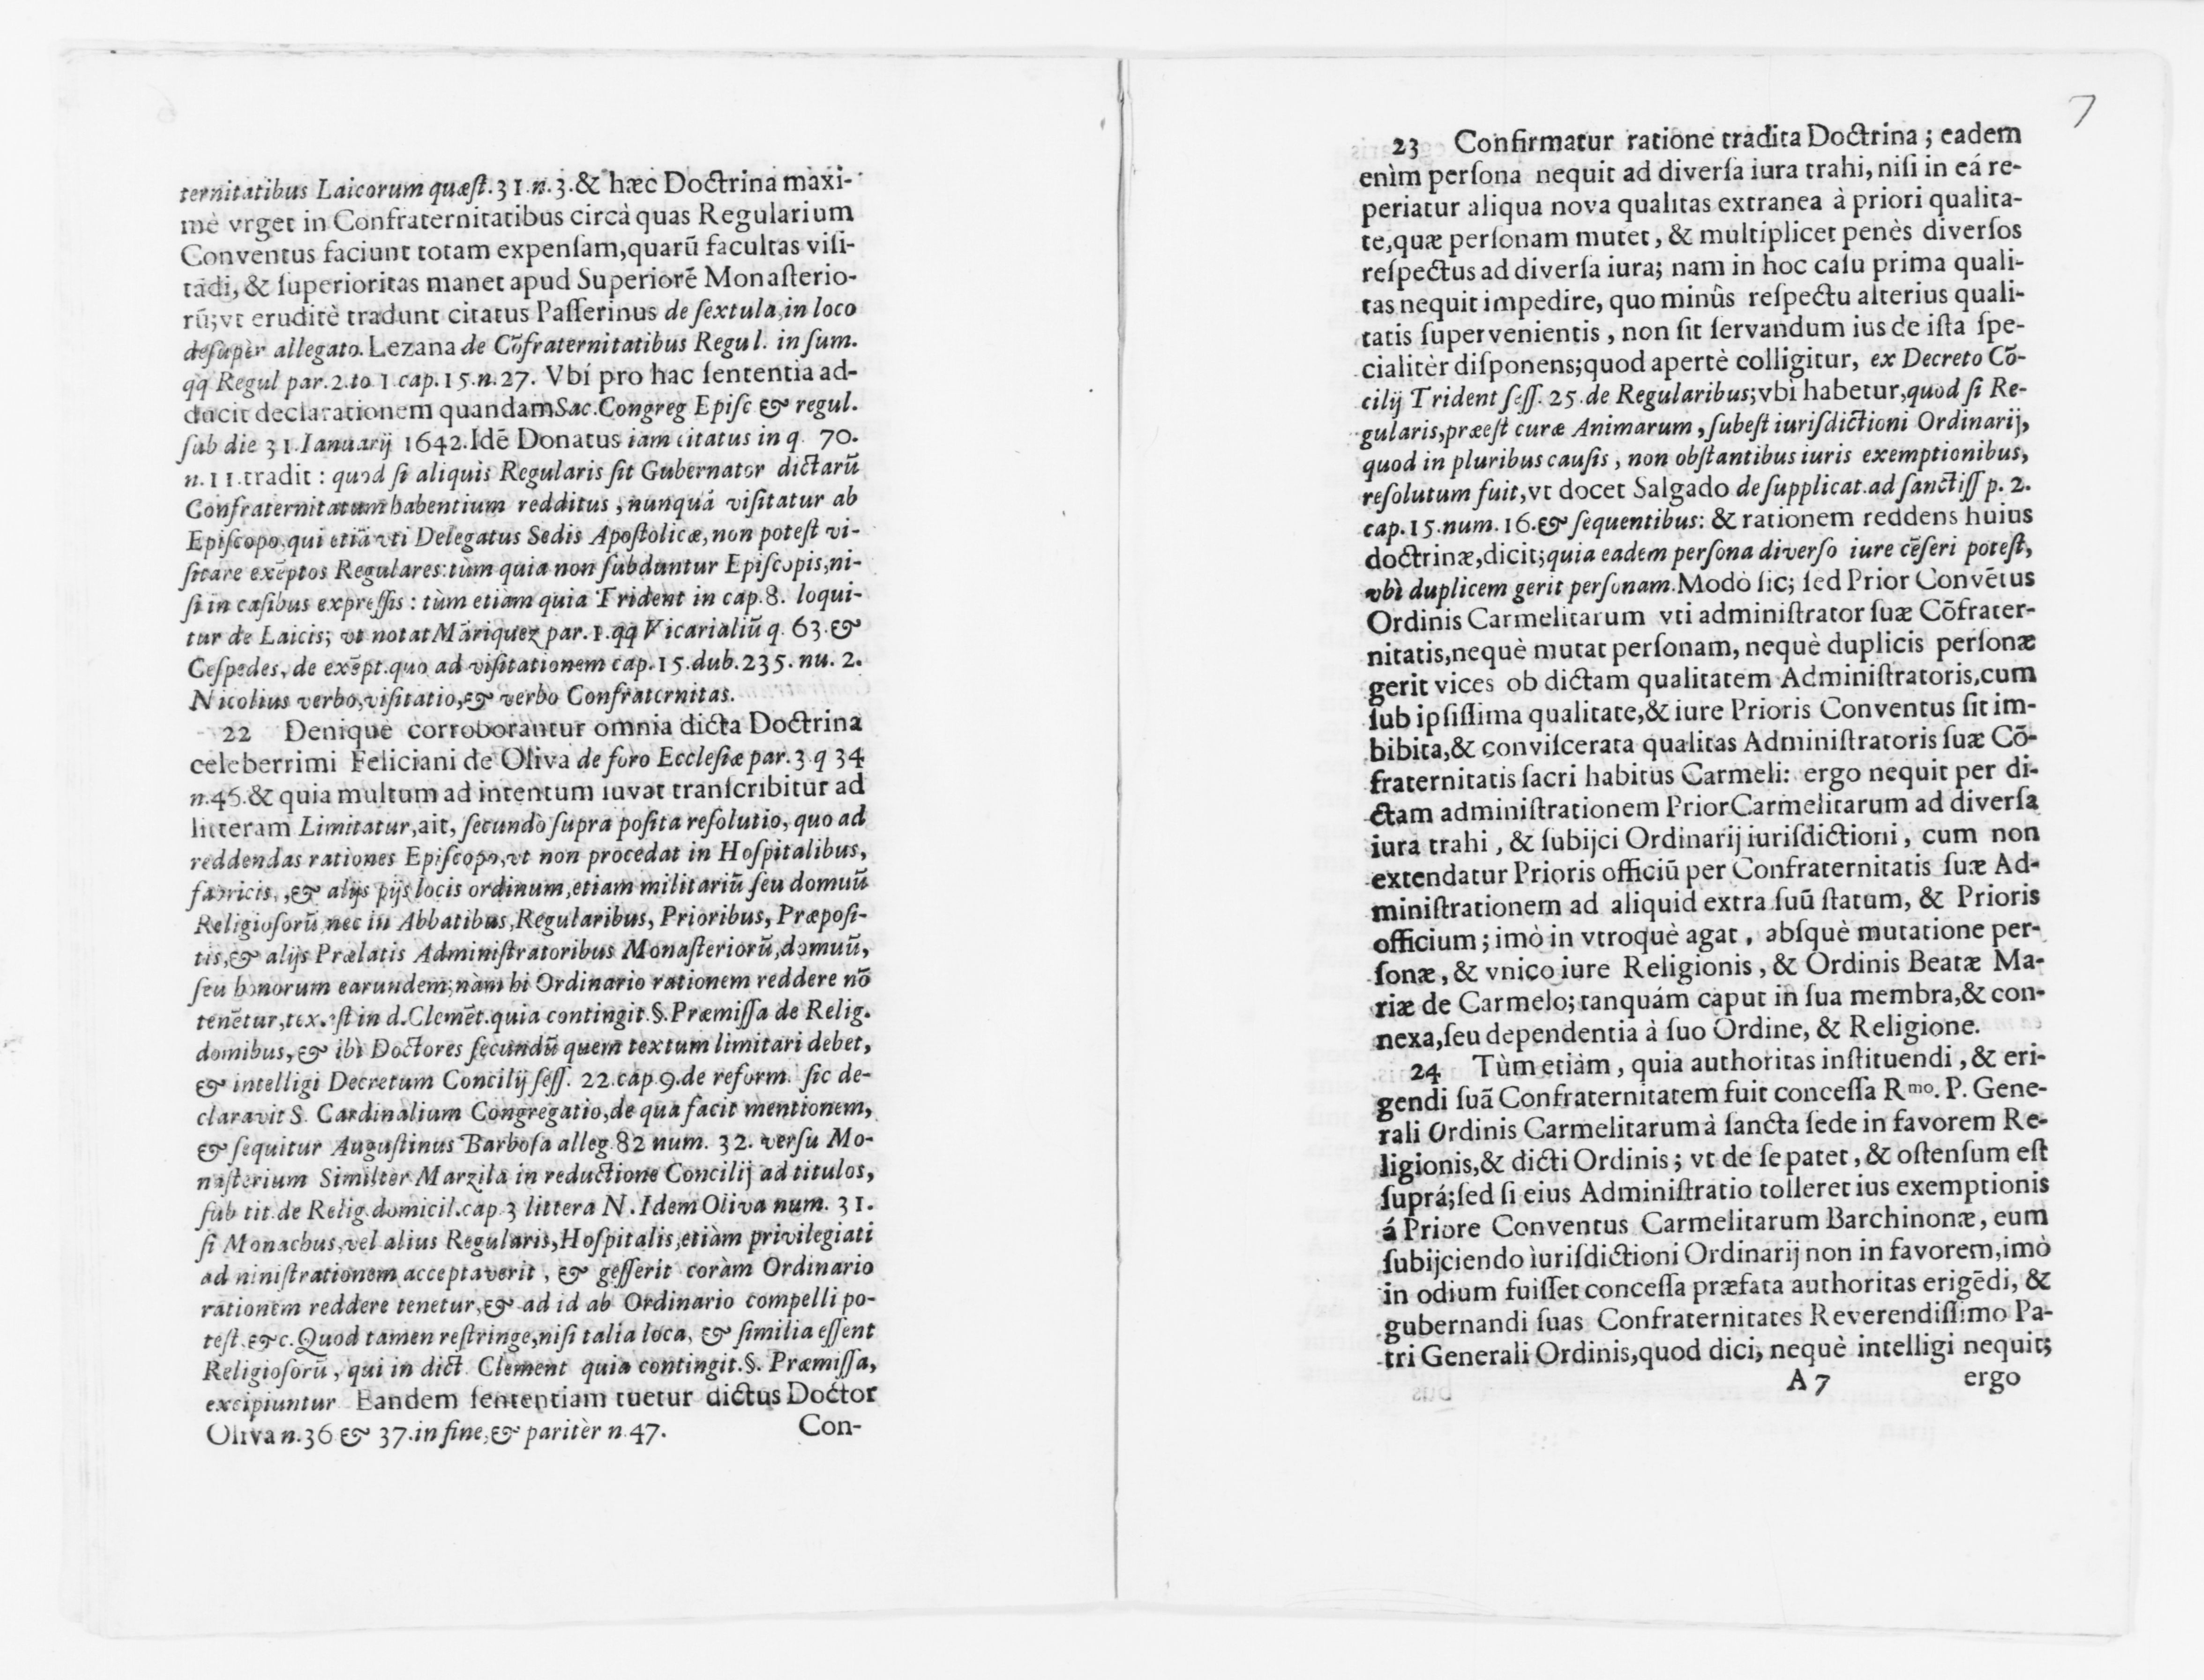 ternitatibus Laicorum quæſt.31.n.3.& hæc Doctrina maxi-
mè vrget in Confraternitatibus circà quas Regularium
Conventus faciunt totam expenſam,quarū facultas viſi-
tādi, & ſuperioritas manet apud Superiorē Monaſterio-
rū;vt eruditè tradunt citatus Paſſerinus de ſextula,in loco
deſupèr allegato.Lezana de Cōfraternitatibus Regul. in ſum.
qq Regul par.2.to 1.cap.15.n.27. Vbí pro hac ſententia ad-
ducit declarationem quandamSac.Congreg Epiſc & regul.
ſub die 31.Ianuarij 1642.Idē Donatus iam citatus in q. 70.
n.11.tradit : quod ſi aliquis Regularis ſit Gubernator dictarū
Confraternitatum habentium redditus , nunquā viſitatur ab
Epiſcopo,qui etiā vti Delegatus Sedis Apoſtolicæ,non poteſt vi-
ſitare exēptos Regulares:tùm quia non ſubduntur Epiſcopis,ni-
ſi in caſibus expreſſis : tùm etiàm quia Trident in cap.8. loqui-
tur de Laicis; vt notat Māriquez par.1.qq Vicarialiū q. 63.&
Ceſpedes, de exēpt.quo ad viſitationem cap.15.dub.235. nu. 2.
Nicolius verbo,viſitatio,& verbo Confraternitas.
22 Deniquè corroborantur omnia dicta Doctrina
celeberrimi Feliciani de Oliva de foro Eccleſiæ par.3.q 34
n.46.& quia multum ad intentum iuvat tranſcribitur ad
litteram Limitatur,ait, ſecundò ſupra poſita reſolutio, quo ad
reddendas rationes Epiſcopo,vt non procedat in Hoſpitalibus,
fabricis, ,& alijs pijs locis ordinum,etiam militariū ſeu domuū
Religioſorū,nec in Abbatibus,Regularibus, Prioribus, Præpoſi-
tis,& alijs Prælatis Adminiſtratoribus Monaſteriorū,domuū,
ſeu bonorum earundem;nàm hi Ordinario rationem reddere nō
tenētur,tex. eſt in d.Clemēt.quia contingit.§.Præmiſſa de Relig.
domibus,& ibì Doctores ſecundū quem textum limitari debet,
& intelligi Decretum Concilij ſeſſ. 22.cap.9.de reform. ſic de-
claravit S. Cardinalium Congregatio,de qua facit mentionem,
& ſequitur Auguſtinus Barboſa alleg.82 num. 32. verſu Mo-
naſterium Similter Marzila in reductione Concilij ad titulos,
ſub tit.de Relig.domicil.cap.3 littera N.Idem Oliva num. 31.
ſi Monachus,vel alius Regularis,Hoſpitalis,etiàm privilegiati
adminiſtrationem acceptaverit , & geſſerit coràm Ordinario
rationem reddere tenetur,& ad id ab Ordinario compelli po-
teſt.&c.Quod tamen reſtringe,niſi talia loca, & ſimilia eſſent
Religioſorū , qui in dict. Clement quia contingit.§. Præmiſſa,
excipiuntur Eandem ſententiam tuetur dictus Doctor
Oliva n.36 & 37.in fine,& paritèr n.47.
Con-
7
23 Confirmatur ratione tradita Doctrina ; eadem
enìm perſona nequit ad diverſa iura trahi, niſi in eá re-
periatur aliqua nova qualitas extranea à priori qualita-
te,quæ perſonam mutet, & multiplicet penès diverſos
reſpectus ad diverſa iura; nam in hoc caſu prima quali-
tas nequit impedire, quo minûs reſpectu alterius quali-
tatis ſupervenientis , non ſit ſervandum ius de iſta ſpe-
cialitèr diſponens;quod apertè colligitur, ex Decreto Cō-
cilij Trident ſeſſ. 25.de Regularibus;vbì habetur,quod ſi Re-
gularis,præeſt curæ Animarum , ſubeſt iuriſdictioni Ordinarij,
quod in pluribus cauſis , non obſtantibus iuris exemptionibus,
reſolutum fuit,vt docet Salgado de ſupplicat.ad ſanctiſſ p. 2.
cap.15.num.16.& ſequentibus: & rationem reddens huius
doctrinæ,dicit;quia eadem perſona diverſo iure cēſeri poteſt,
vbì duplicem gerit perſonam.Modò ſic; ſed Prior Convētus
Ordinis Carmelitarum vti adminiſtrator ſuæ Cōfrater-
nitatis,nequè mutat perſonam, nequè duplicis perſonæ
gerit vices ob dictam qualitatem Adminiſtratoris,cum
ſub ipſiſſima qualitate,& iure Prioris Conventus ſit im-
bibita,& conviſcerata qualitas Adminiſtratoris ſuæ Cō-
fraternitatis ſacri habitus Carmeli: ergo nequit per di-
ctam adminiſtrationem PriorCarmelitarum ad diverſa
iura trahi , & ſubijci Ordinarij iuriſdictioni , cum non
extendatur Prioris officiū per Confraternitatis ſuæ Ad-
miniſtrationem ad aliquid extra ſuū ſtatum, & Prioris
officium ; imò in vtroquè agat , abſquè mutatione per-
ſonæ, & vnico iure Religionis , & Ordinis Beatæ Ma-
riæ de Carmelo; tanquám caput in ſua membra,& con-
nexa,ſeu dependentia à ſuo Ordine, & Religione.
24 Tùm etiàm , quia authoritas inſtituendi , & eri-
gendi ſuā Confraternitatem fuit conceſſa Rmo. P. Gene-
rali Ordinis Carmelitarum à ſancta ſede in favorem Re-
ligionis,& dicti Ordinis ; vt de ſe patet , & oſtenſum eſt
ſuprá;ſed ſi eius Adminiſtratio tolleret ius exemptionis
á Priore Conventus Carmelitarum Barchinonæ, eum
ſubijciendo ìuriſdictioni Ordinarij non in favorem,imò
in odium fuiſſet conceſſa præfata authoritas erigēdi, &
gubernandi ſuas Confraternitates Reverendiſſimo Pa-
tri Generali Ordinis,quod dici, nequè intelligi nequit;
A 7 ergo